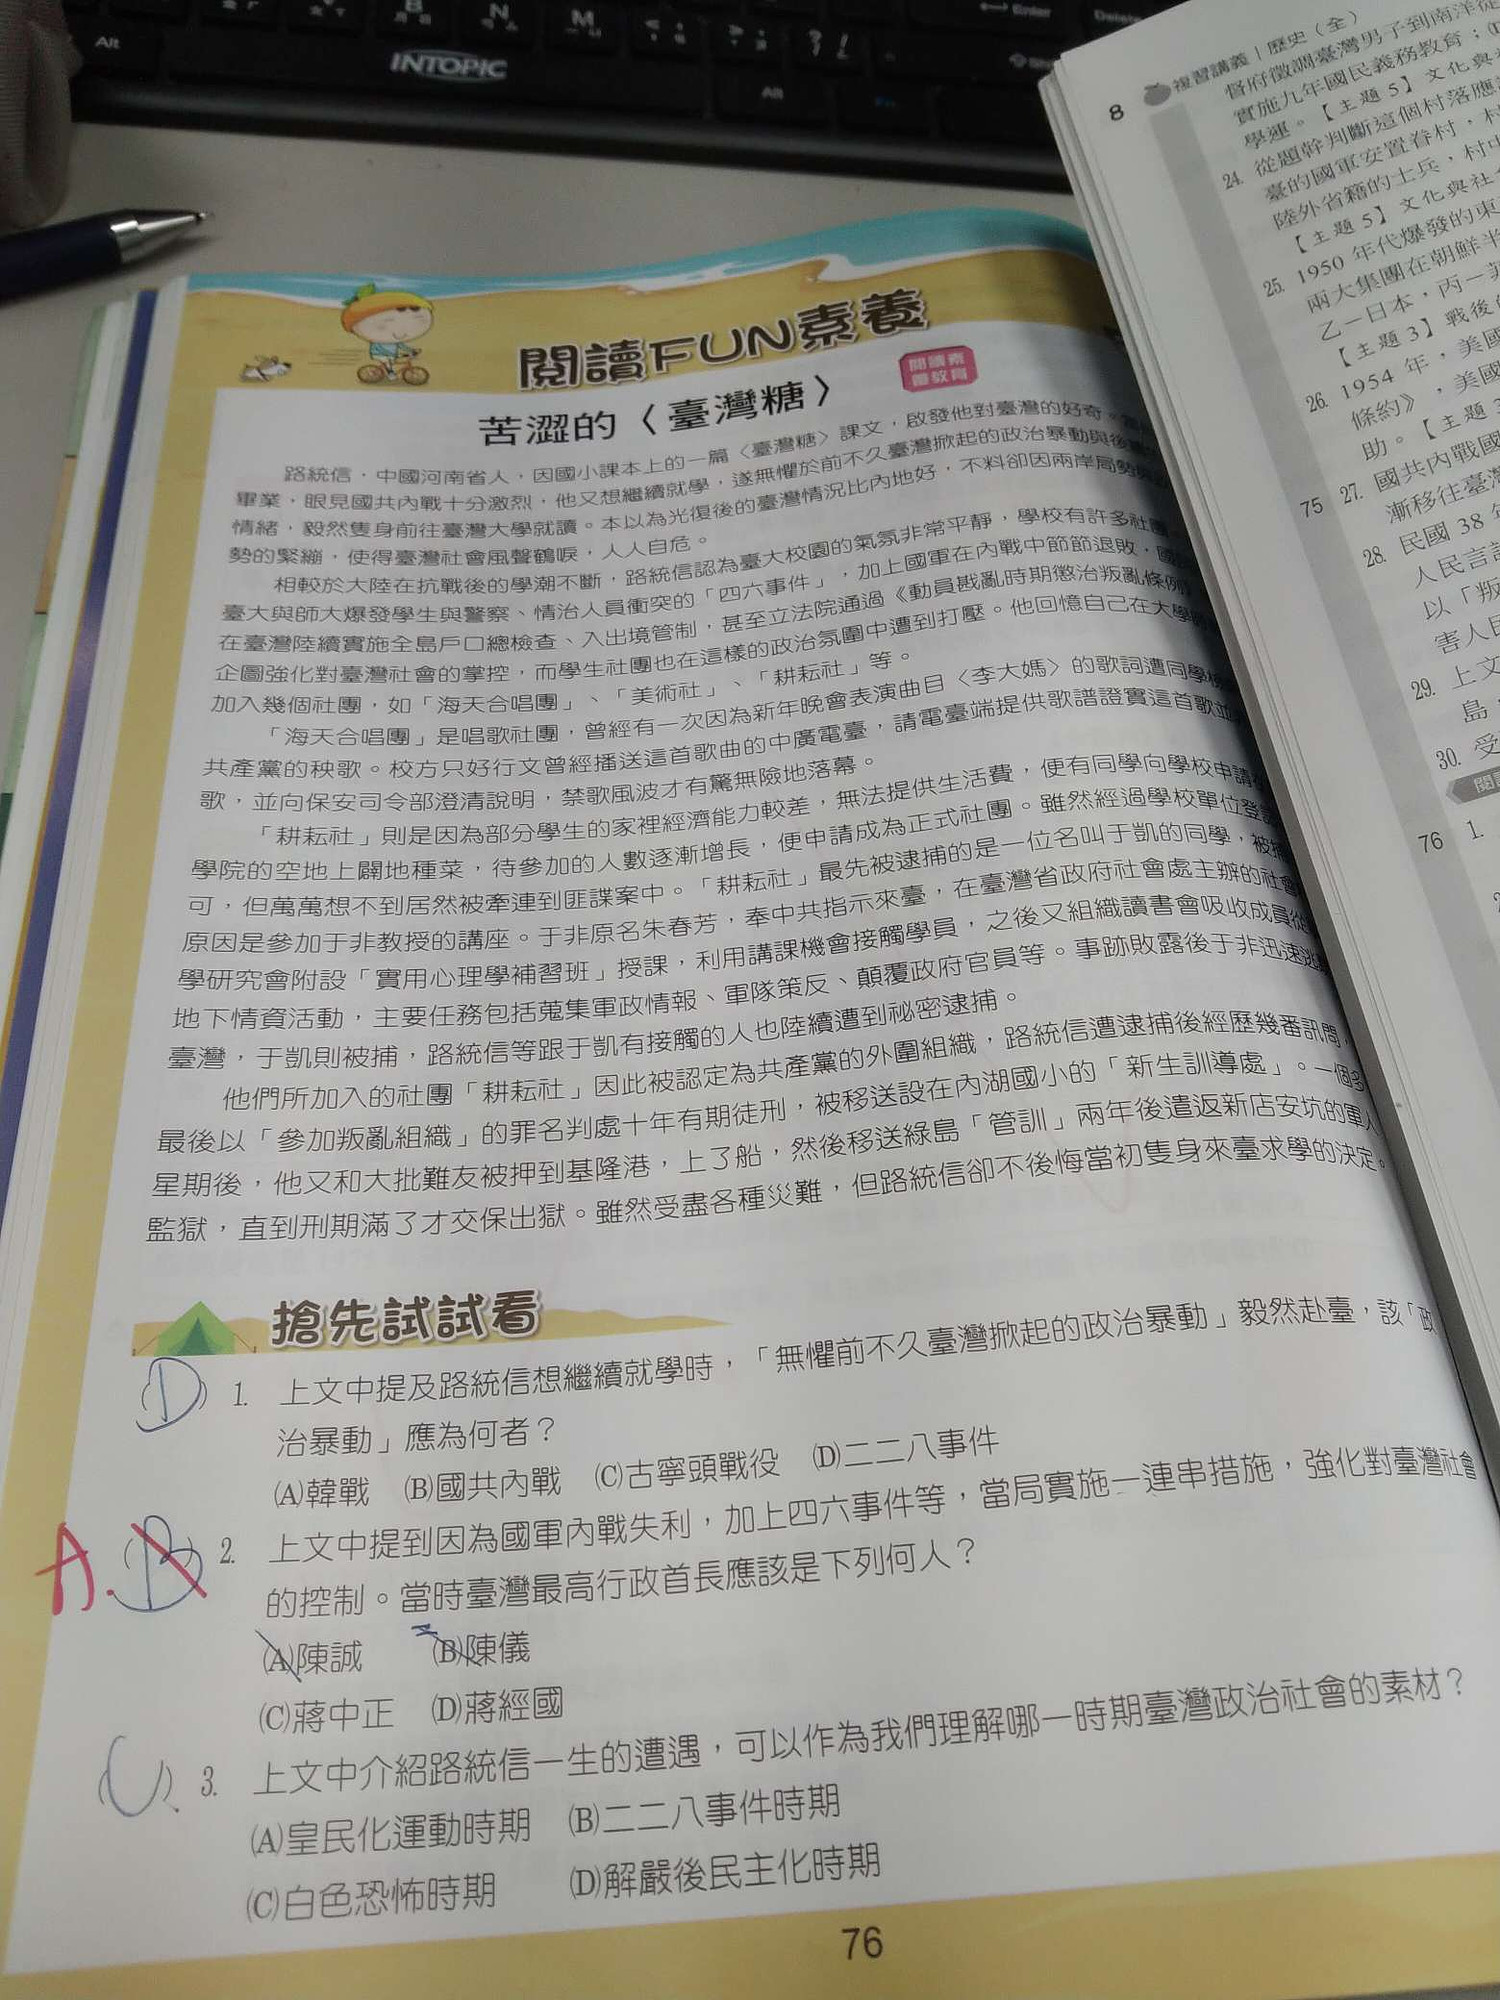 Alt
B
N
M
Enter
Delete
INTOPIC
Alt
8
複習講義｜歷史（全）
督府徵調臺灣男子到南洋從
實施九年國民義務教育；
學運。【主題5】文化與
24. 從題幹判斷這個村落應
臺的國軍安置眷村，村
陸外省籍的士兵，村中
【主題5】文化與社
25. 1950 年代爆發的東
兩大集團在朝鮮半
乙－日本，丙－菲
【主題3】戰後
26. 1954 年，美國
條約》，美國
助。【主題
75 27. 國共內戰國
漸移往臺灣
28. 民國 38 年
人民言論
以「叛
害人民
29. 上文
島，
30. 受
閱讀
76 1.
閱讀FUN素養
閱讀素養教育
苦澀的〈臺灣糖〉
路統信，中國河南省人，因國小課本上的一篇〈臺灣糖〉課文，啟發他對臺灣的好奇。
畢業，眼見國共內戰十分激烈，他又想繼續就學，遂無懼於前不久臺灣掀起的政治暴動與後
情緒，毅然隻身前往臺灣大學就讀。本以為光復後的臺灣情況比內地好，不料卻因兩岸局勢
勢的緊繃，使得臺灣社會風聲鶴唳，人人自危。
相較於大陸在抗戰後的學潮不斷，路統信認為臺大校園的氣氛非常平靜，學校有許多社團
臺大與師大爆發學生與警察、情治人員衝突的「四六事件」，加上國軍在內戰中節節退敗，國
在臺灣陸續實施全島戶口總檢查、入出境管制，甚至立法院通過《動員戡亂時期懲治叛亂條例》
企圖強化對臺灣社會的掌控，而學生社團也在這樣的政治氛圍中遭到打壓。他回憶自己在大學
加入幾個社團，如「海天合唱團」、「美術社」、「耕耘社」等。
「海天合唱團」是唱歌社團，曾經有一次因為新年晚會表演曲目〈李大媽〉的歌詞遭同學
共產黨的秧歌。校方只好行文曾經播送這首歌曲的中廣電臺，請電臺端提供歌譜證實這首歌並
歌，並向保安司令部澄清說明，禁歌風波才有驚無險地落幕。
「耕耘社」則是因為部分學生的家裡經濟能力較差，無法提供生活費，便有同學向學校申請
學院的空地上闢地種菜，待參加的人數逐漸增長，便申請成為正式社團。雖然經過學校單位登記
可，但萬萬想不到居然被牽連到匪諜案中。「耕耘社」最先被逮捕的是一位名叫于凱的同學，被捕
原因是參加于非教授的講座。于非原名朱春芳，奉中共指示來臺，在臺灣省政府社會處主辦的社會
學研究會附設「實用心理學補習班」授課，利用講課機會接觸學員，之後又組織讀書會吸收成員從
地下情資活動，主要任務包括蒐集軍政情報、軍隊策反、顛覆政府官員等。事跡敗露後于非迅速逃
臺灣，于凱則被捕，路統信等跟于凱有接觸的人也陸續遭到祕密逮捕。
他們所加入的社團「耕耘社」因此被認定為共產黨的外圍組織，路統信遭逮捕後經歷幾番訊問，
最後以「參加叛亂組織」的罪名判處十年有期徒刑，被移送設在內湖國小的「新生訓導處」。一個多
星期後，他又和大批難友被押到基隆港，上了船，然後移送綠島「管訓」兩年後遣返新店安坑的軍人
監獄，直到刑期滿了才交保出獄。雖然受盡各種災難，但路統信卻不後悔當初隻身來臺求學的決定。
搶先試試看
(D) 1. 上文中提及路統信想繼續就學時，「無懼前不久臺灣掀起的政治暴動」毅然赴臺，該「政
治暴動」應為何者？
(A)韓戰 (B)國共內戰 (C)古寧頭戰役 (D)二二八事件
A. (B) 2. 上文中提到因為國軍內戰失利，加上四六事件等，當局實施一連串措施，強化對臺灣社會
的控制。當時臺灣最高行政首長應該是下列何人？
(A)陳誠 (B)陳儀
(C)蔣中正 (D)蔣經國
(C) 3. 上文中介紹路統信一生的遭遇，可以作為我們理解哪一時期臺灣政治社會的素材？
(A)皇民化運動時期 (B)二二八事件時期
(C)白色恐怖時期 (D)解嚴後民主化時期
76